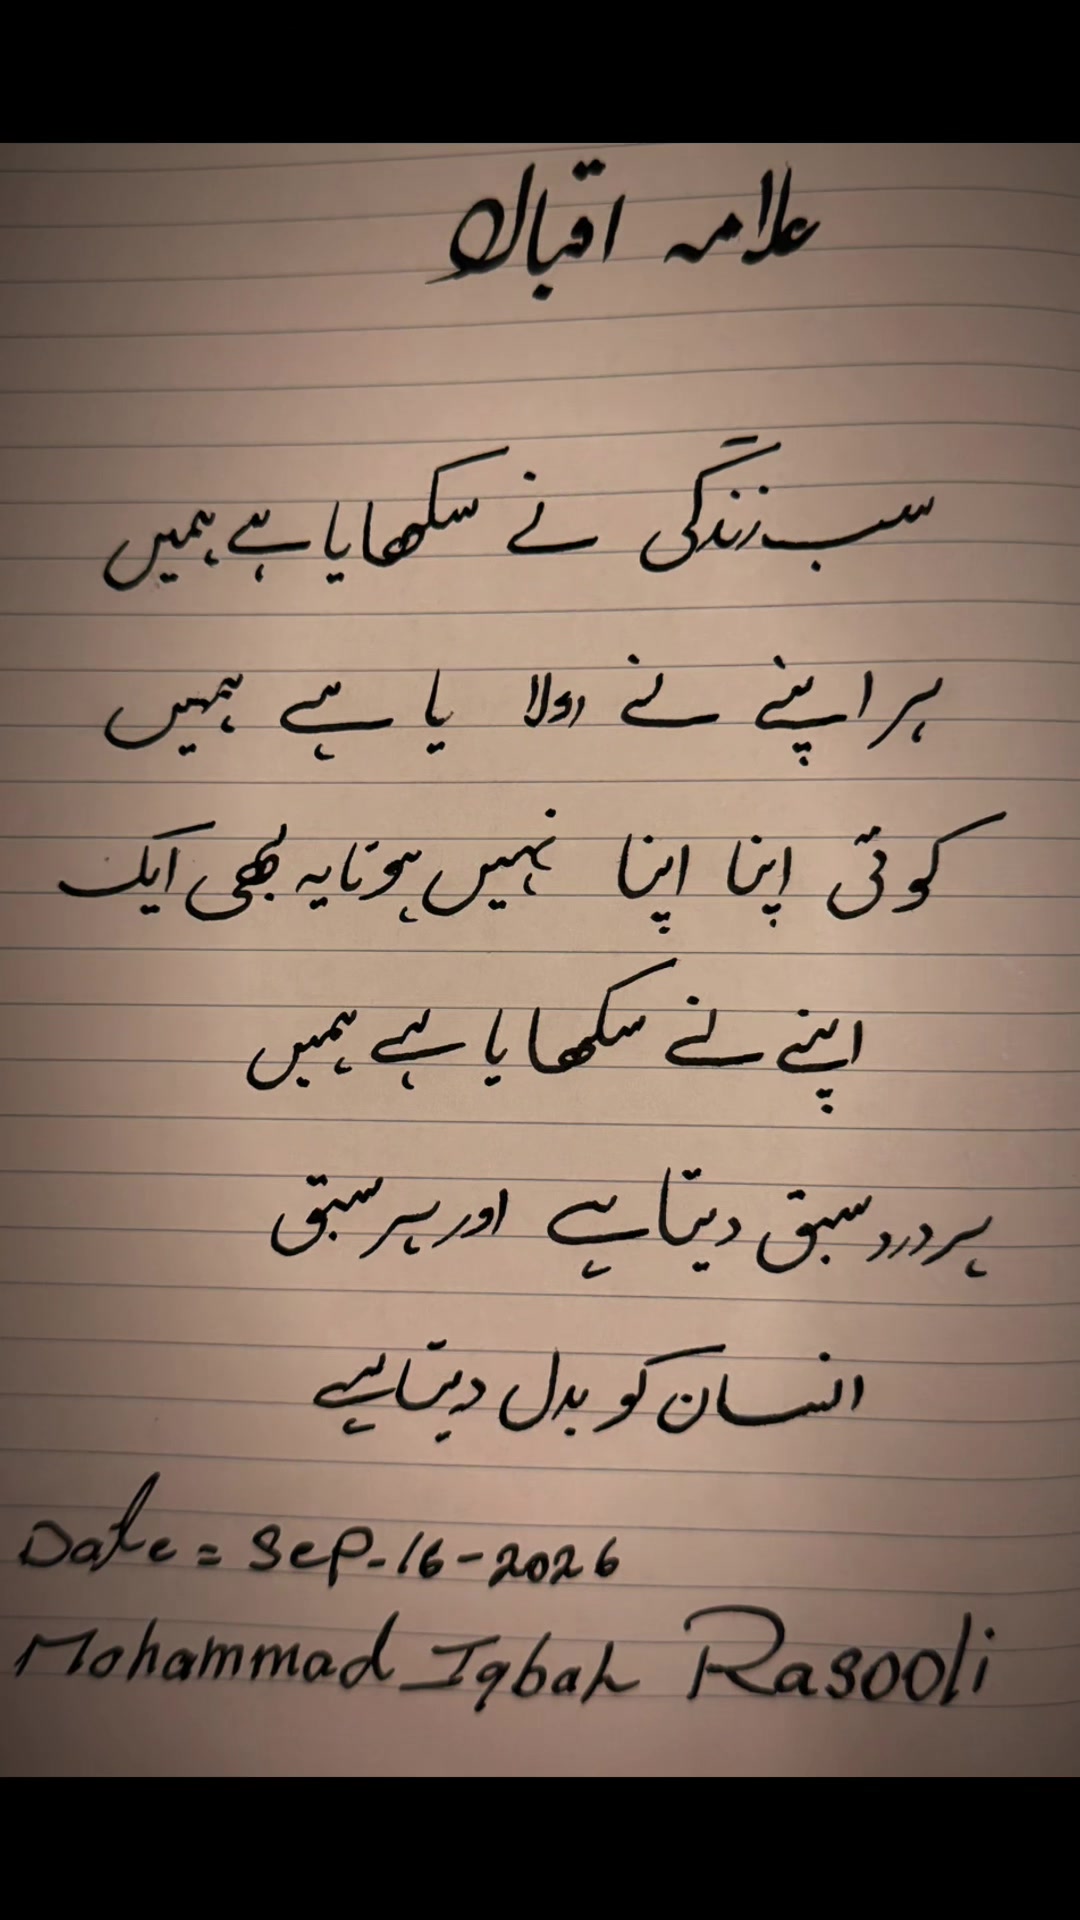 علامہ اقبال
سب زندگی نے سکھایا ہے ہمیں
ہر اپنے نے رولا یا ہے ہمیں
کوئی اپنا اپنا نہیں ہوتا یہ بھی ایک
اپنے نے سکھایا ہے ہمیں
ہر درد سبق دیتا ہے اور ہر سبق
انسان کو بدل دیتا ہے
Date = Sep-16-2026
Mohammad Iqbal Rasooli